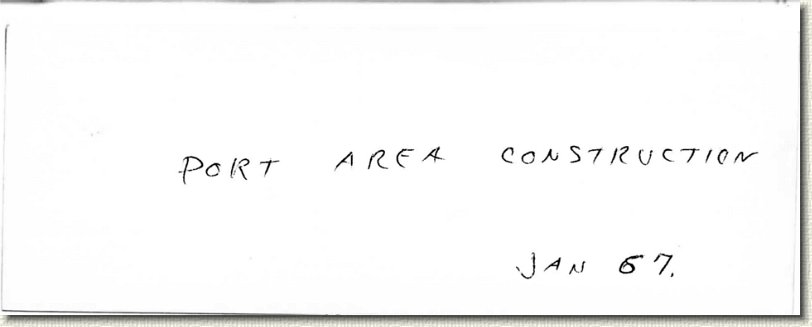 PORT AREA CONSTRUCTION
JAN 67.